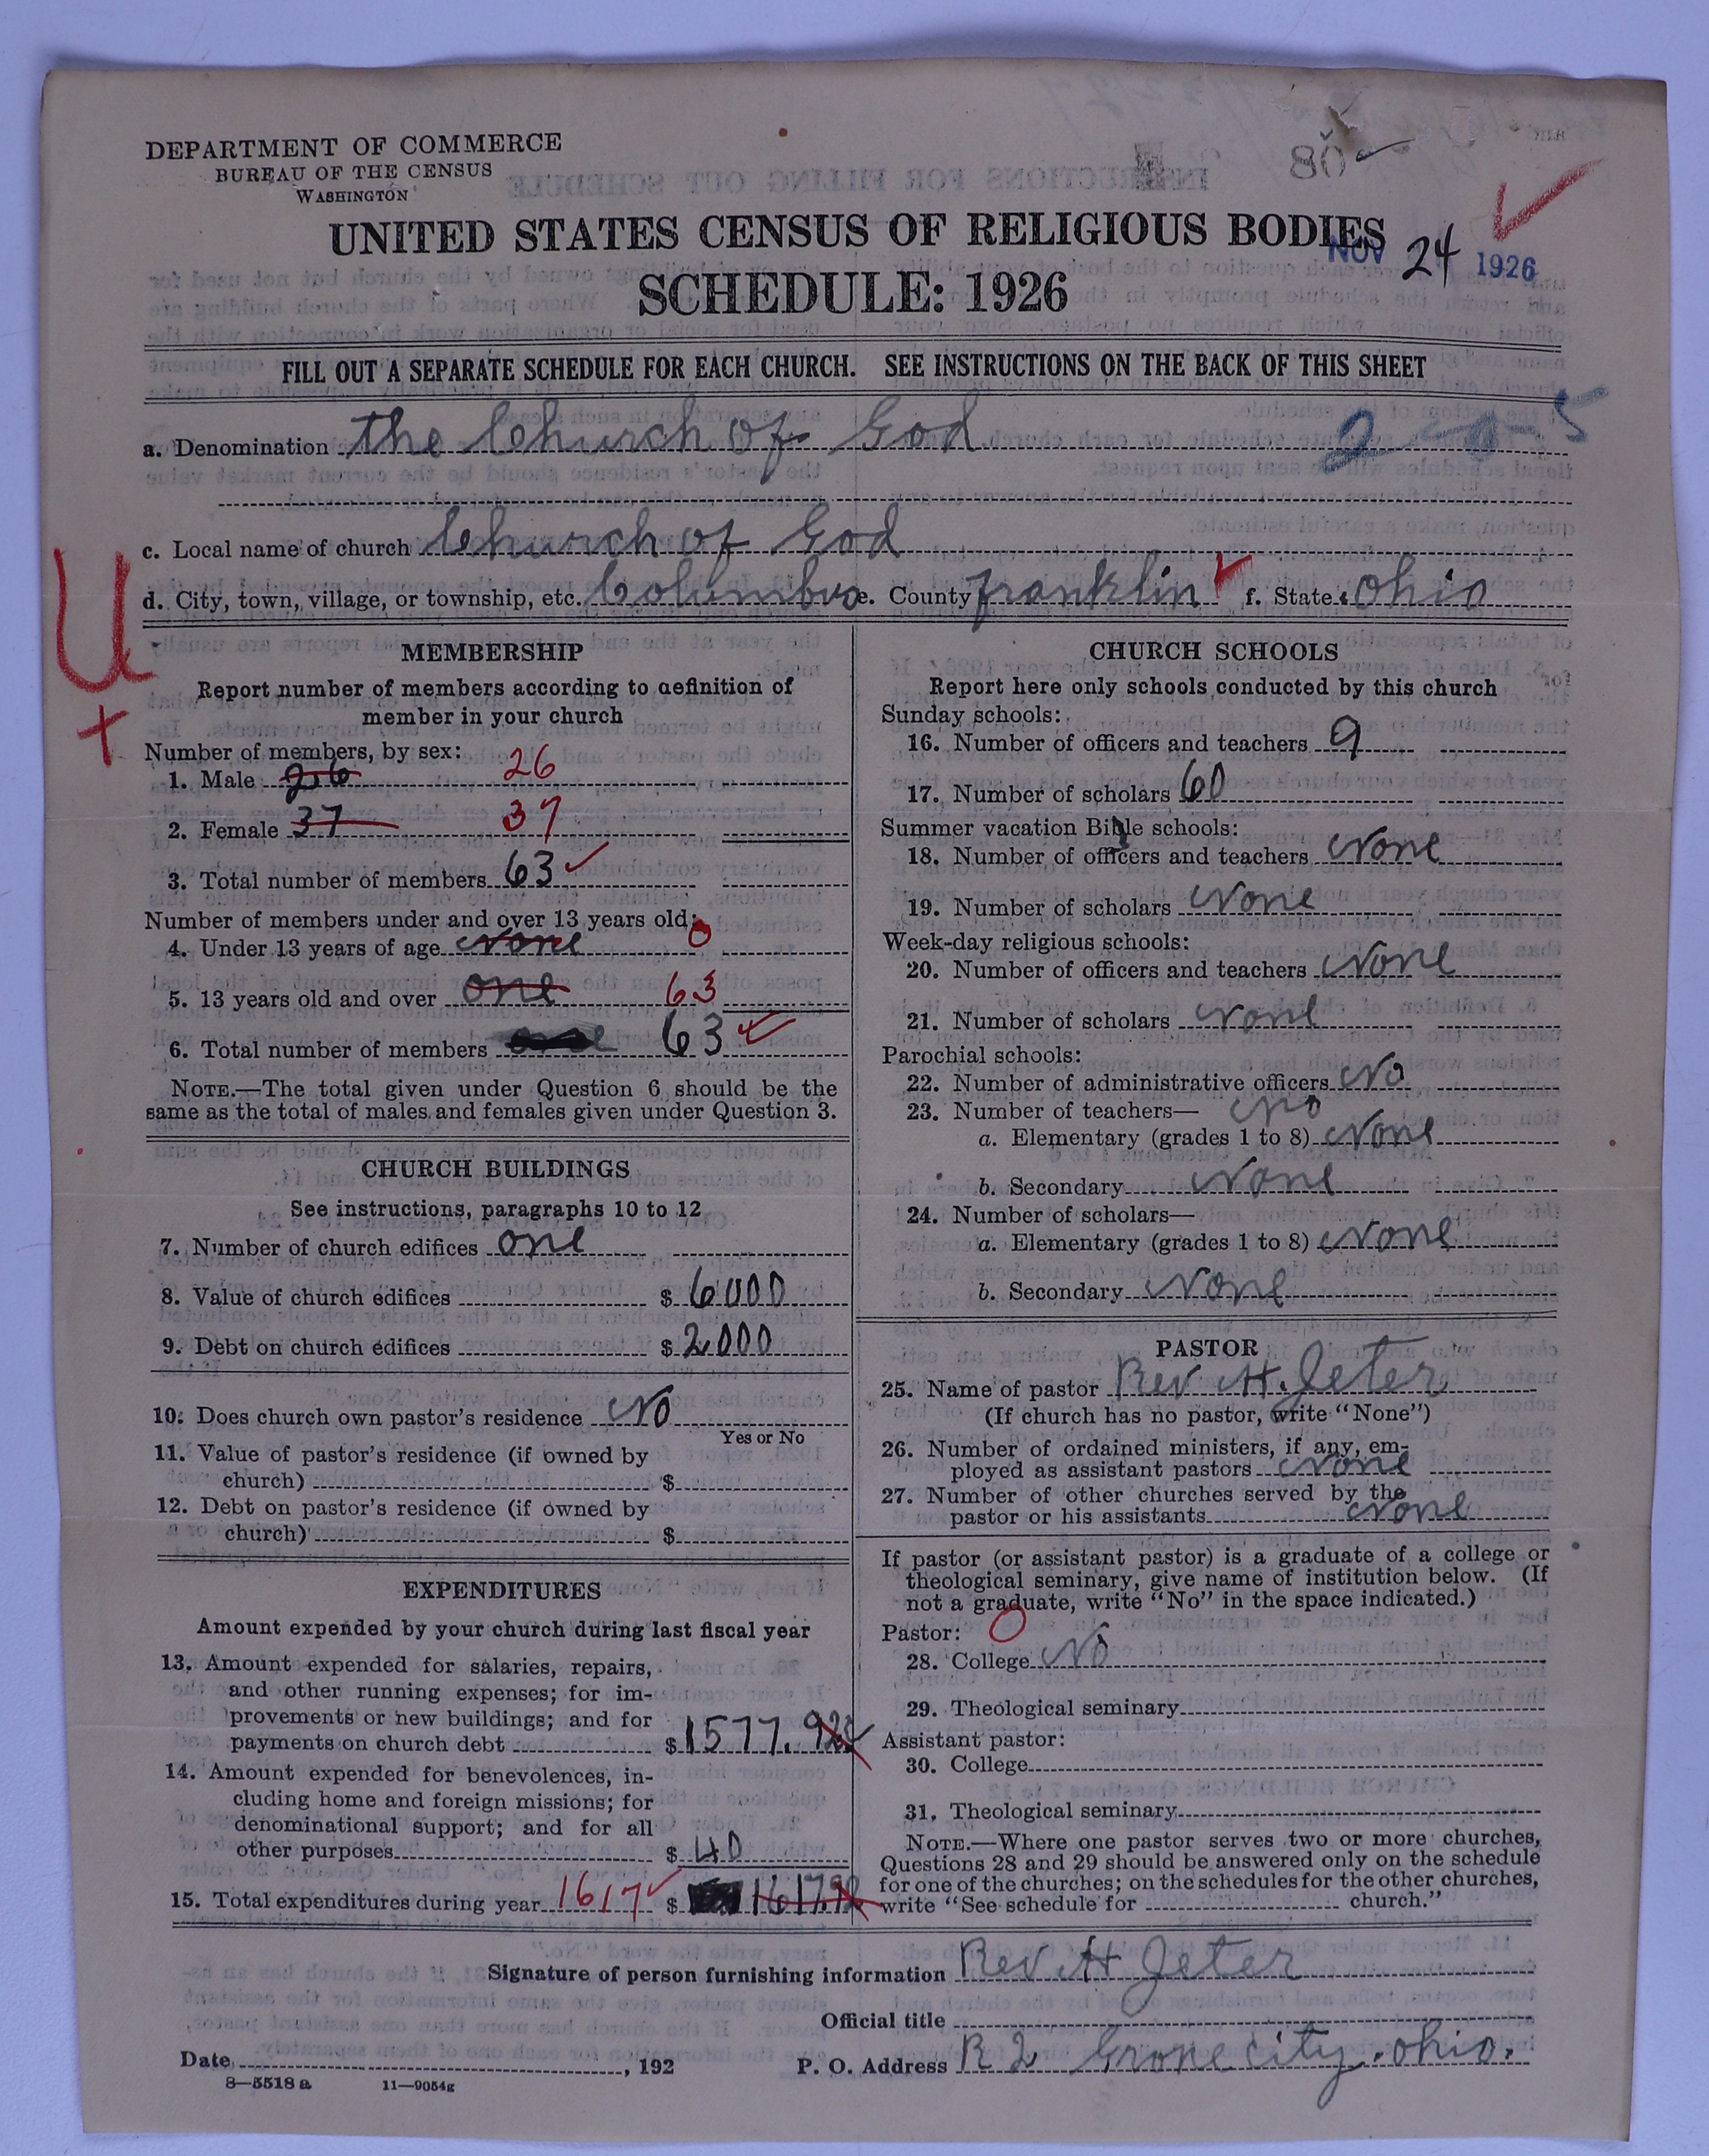 DEPARTMENT OF COMMERCE
BUREAU OF THE CENSUS
WASHINGTON
80
UNITED STATES CENSUS OF RELIGIOUS BODIES
NOV 24 1926
SCHEDULE: 1926
FILL OUT A SEPARATE SCHEDULE FOR EACH CHURCH. SEE INSTRUCTIONS ON THE BACK OF THIS SHEET
a. Denomination the Church of God 2-0-5
c. Local name of church Church of God
d. City, town, village, or township, etc. Columbus e. County franklin f. State ohio
U
+
MEMBERSHIP
Report number of members according to definition of
member in your church
Number of members, by sex:
1. Male 26 26
2. Female 37 37
3. Total number of members 63
Number of members under and over 13 years old:
4. Under 13 years of age none 0
5. 13 years old and over one 63
6. Total number of members 63
NOTE.—The total given under Question 6 should be the
same as the total of males and females given under Question 3.
CHURCH BUILDINGS
See instructions, paragraphs 10 to 12
7. Number of church edifices one
8. Value of church edifices $ 6000
9. Debt on church edifices $ 2000
10. Does church own pastor's residence No
Yes or No
11. Value of pastor's residence (if owned by
church) $
12. Debt on pastor's residence (if owned by
church) $
EXPENDITURES
Amount expended by your church during last fiscal year
13. Amount expended for salaries, repairs,
and other running expenses; for im-
provements or new buildings; and for
payments on church debt $ 1577.92
14. Amount expended for benevolences, in-
cluding home and foreign missions; for
denominational support; and for all
other purposes $ 40
15. Total expenditures during year 1617 $ 1617.92
CHURCH SCHOOLS
Report here only schools conducted by this church
Sunday schools:
16. Number of officers and teachers 9
17. Number of scholars 60
Summer vacation Bible schools:
18. Number of officers and teachers None
19. Number of scholars None
Week-day religious schools:
20. Number of officers and teachers None
21. Number of scholars None
Parochial schools:
22. Number of administrative officers No
23. Number of teachers— no
a. Elementary (grades 1 to 8) None
b. Secondary None
24. Number of scholars—
a. Elementary (grades 1 to 8) None
b. Secondary None
PASTOR
25. Name of pastor Rev H. Jeter
(If church has no pastor, write "None")
26. Number of ordained ministers, if any, em-
ployed as assistant pastors None
27. Number of other churches served by the
pastor or his assistants None
If pastor (or assistant pastor) is a graduate of a college or
theological seminary, give name of institution below. (If
not a graduate, write "No" in the space indicated.)
Pastor: O
28. College No
29. Theological seminary
Assistant pastor:
30. College
31. Theological seminary
NOTE.—Where one pastor serves two or more churches,
Questions 28 and 29 should be answered only on the schedule
for one of the churches; on the schedules for the other churches,
write "See schedule for church."
Signature of person furnishing information Rev H Jeter
Official title
Date , 192 P. O. Address R 2 Grove city. ohio.
8—5518 a 11—9054g